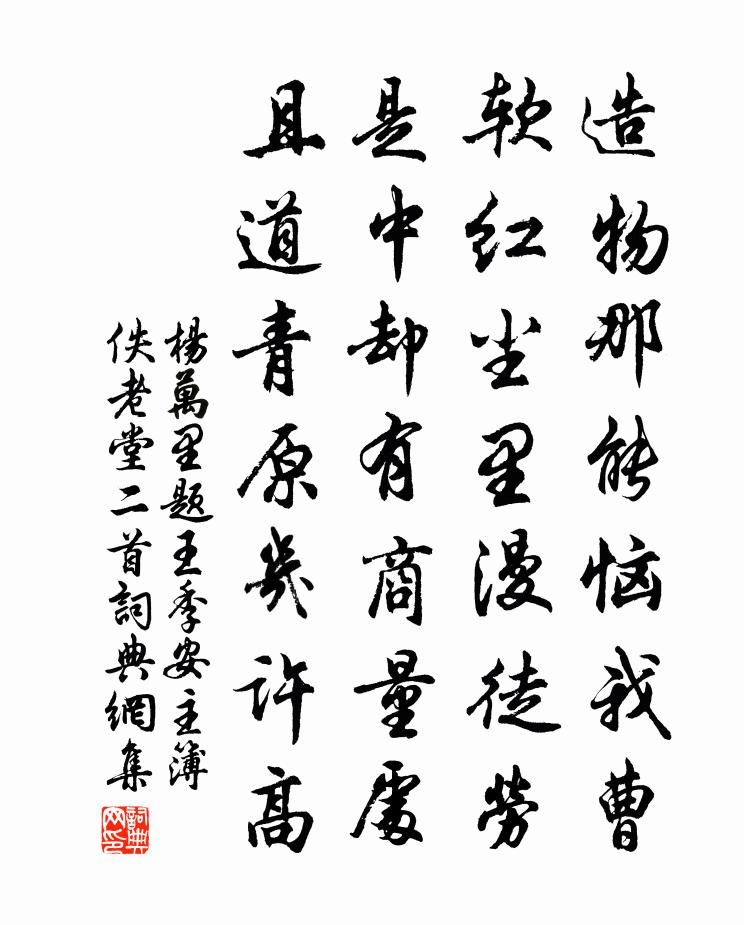 造物那能恼我曹
软红尘里漫徒劳
是中却有商量处
且道青原几许高
杨万里题王季安主簿
佚老堂二首词典网集
词典网印